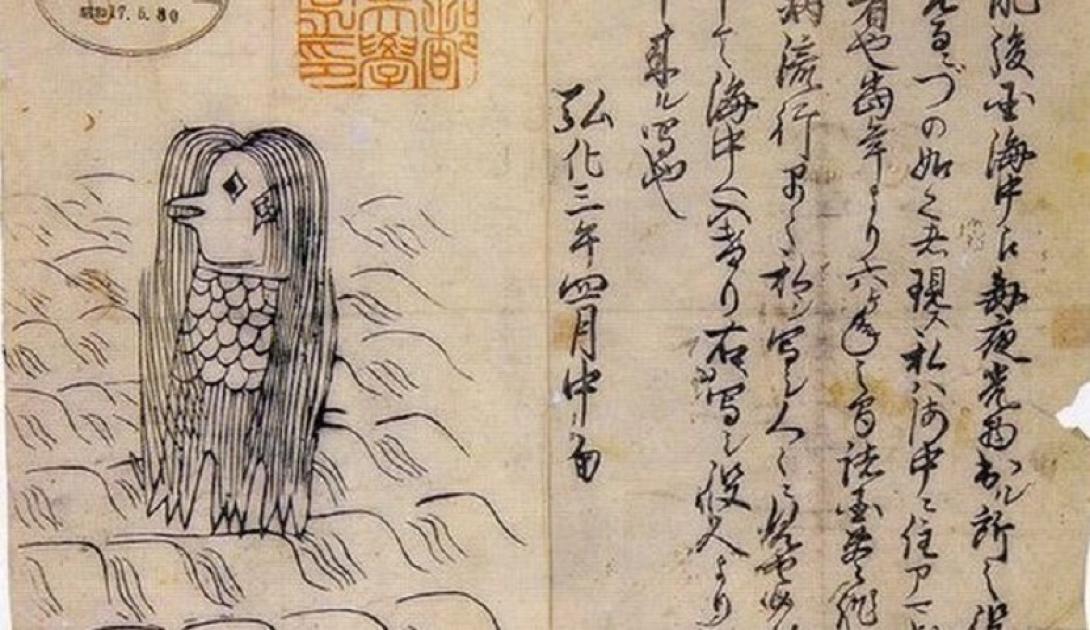 肥後国海中え毎夜光物出ル所之役
見るニづの如く者現ス私ハ海中ニ住アマ
者也当年より六ヶ年之間諸国豊作也併
病流行早々私シ写シ人々ニ見せ候
申て海中へ入けり右写シ役人より
申来ル写也
弘化三年四月中旬
昭和17.5.30